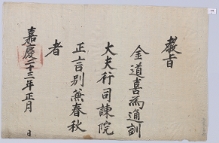 教旨
金道喜為通訓
大夫行司諫院
正言別兼春秋
者
嘉慶二十三年正月 日